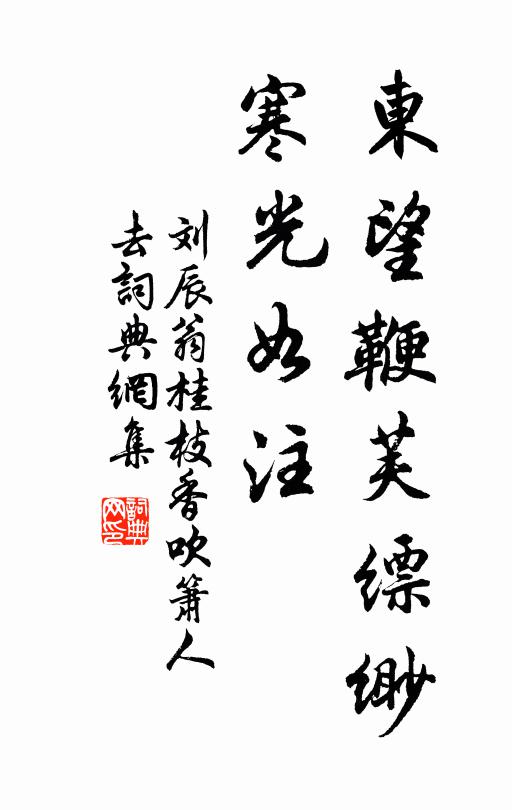 東望鞭芙縹緲
寒光如注
刘辰翁桂枝香吹簫人
去詞典網集
詞典網印